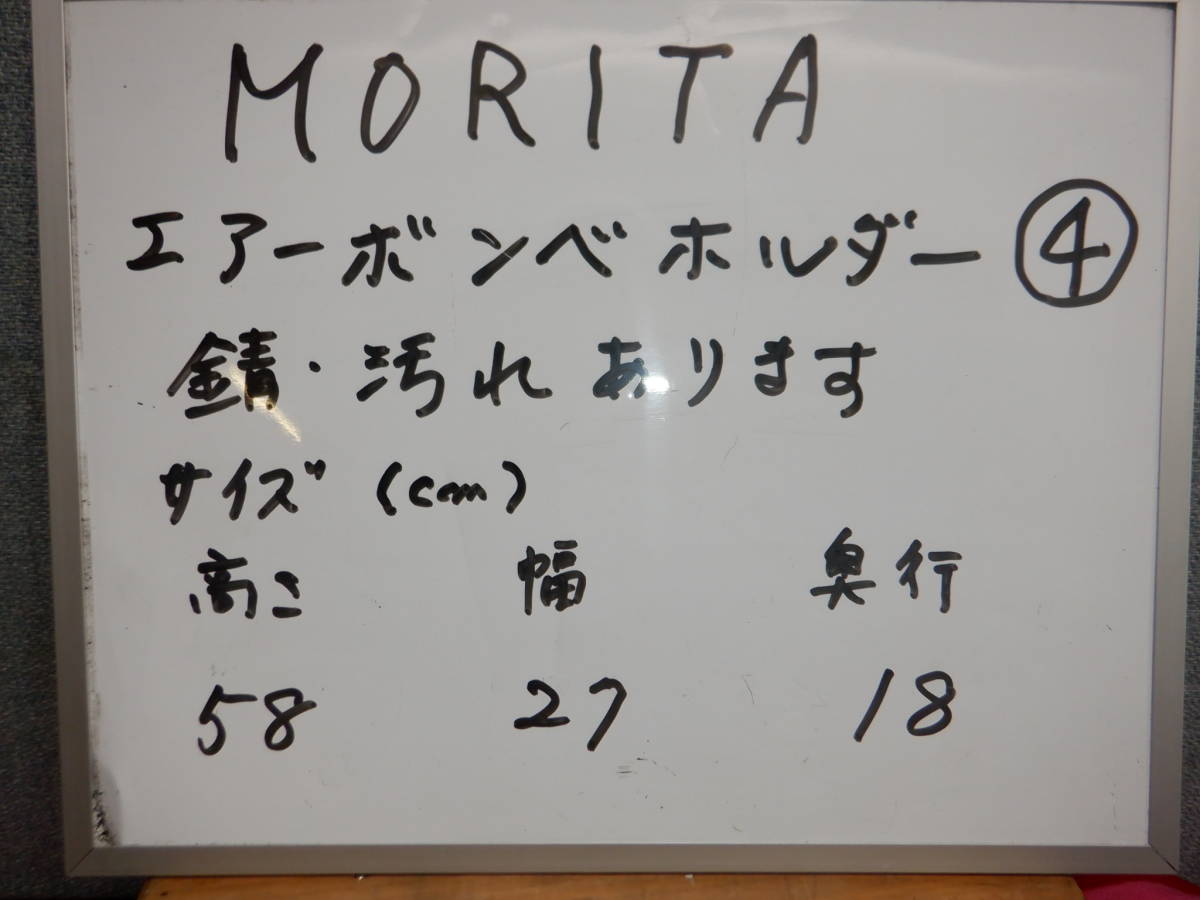 MORITA
エアーボンベホルダー ④
錆・汚れあります
サイズ (cm)
高さ 幅 奥行
58 27 18